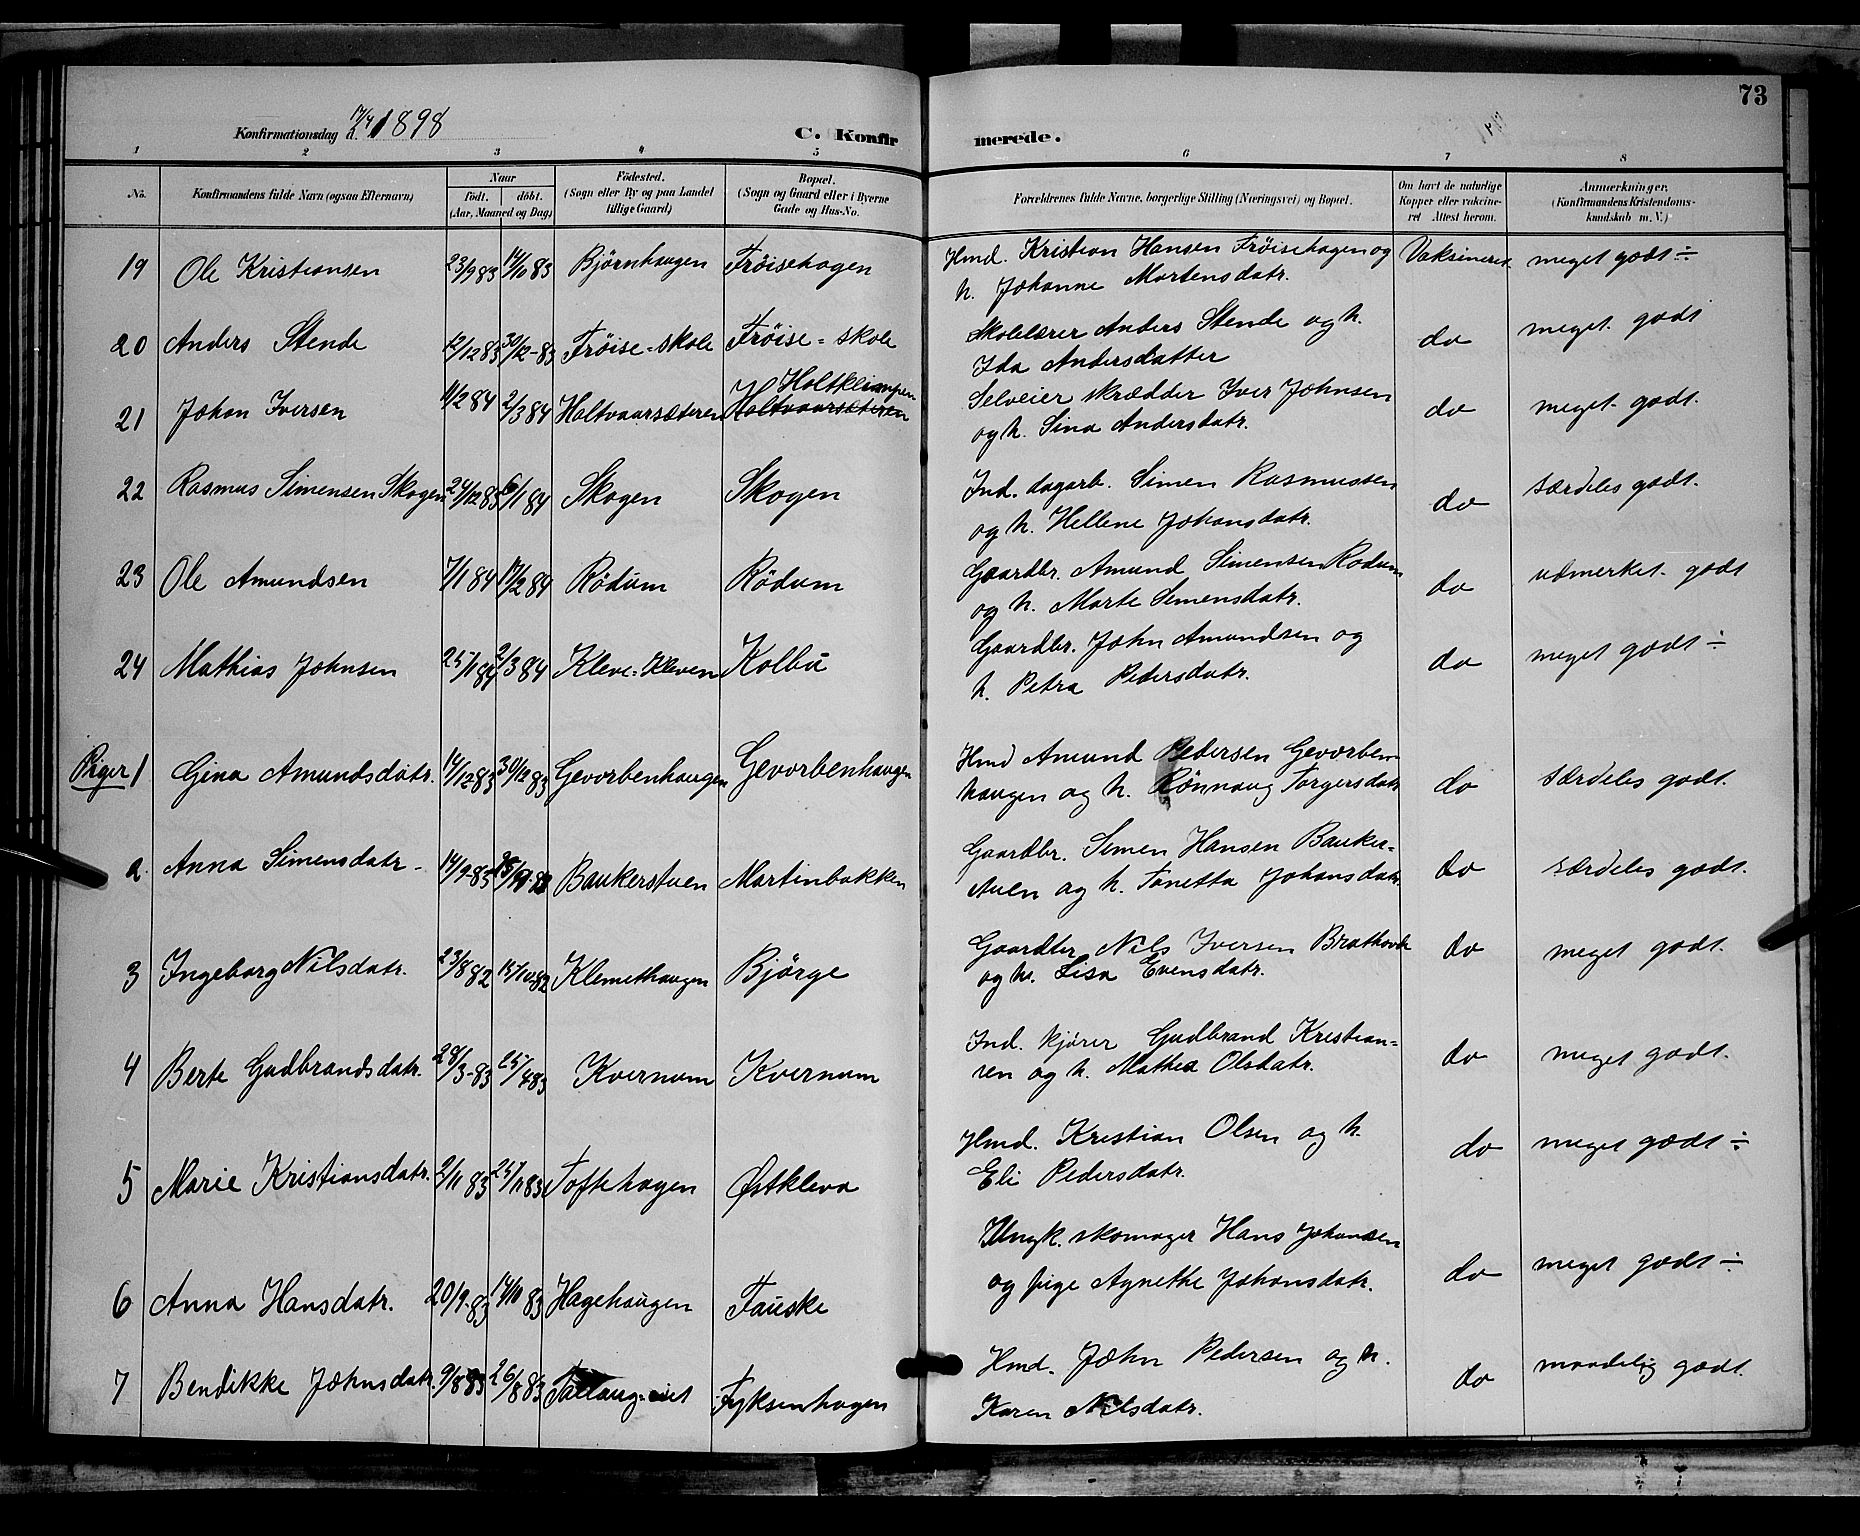 73
Konfirmationsdag 17/4 1898
C. Konfirmerede.
1 2 3 4 5 6 7 8
No. | Konfirmandens fulde Navn (ogsaa Efternavn) | Naar født. døbt. (Aar, Maaned og Dag) | Fødested. (Sogn eller By og paa Landet tillige Gaard) | Bopæl. (Sogn og Gaard eller i Byerne Gade og Hus-No. | Forældrenes fulde Navne, borgerlige Stilling (Næringsvei) og Bopæl. | Om havt de naturlige Kopper eller vaccineret Attest herom. | Anmærkninger. (Konfirmandens Kristendomskundskab m. V.)
19 Ole Kristiansen 23/9 83 14/10 83 Bjørnhaugen Frøisehagen Hmd. Kristian Hansen Frøisehagen og Vaksineret meget godt ÷
h. Johanne Mortensdatr.
20 Anders Stende 12/12 83 30/12-83 Frøise-skole Frøise=skole Skolelærer Anders Stende og h. do meget godt
Ida Andersdatter
21 Johan Iversen 11/2 84 2/3 84 Holtvaarsæteren Holtvaarsæteren Selveier skrædder Iver Johnsen do meget godt.
og h. Sina Andersdatr.
22 Rasmus Simensen Skogen 24/12 83 6/1 84 Skogen Skogen Ind. dagarb. Simen Rasmussen do særdeles godt.
og h. Hellene Johansdatr.
23 Ole Amundsen 7/1 84 17/2 84 Rödum Rödum Gaardbr. Amund Simensen Rodum do udmerket godt
og h. Marte Simensdatr.
24 Mathias Johnsen 25/1 84 2/3 84 Kleve=Kleven Kolbu Gaardbr. John Amundsen og do meget godt ÷
h. Petra Pedersdatr.
Piger 1 Gina Amundsdatr. 14/12 83 30/12 83 Gevorbenhaugen Gevorbenhaugen Hmd Amund Pedersen Gevorben- do særdeles godt.
haugen og h. Rønnaug Torgersdatr
2 Anna Simensdatr. 14/9-83 Baukerstuen Martinbakken Gaardbr. Simen Hansen Bauker= do særdeles godt.
stuen og h. Tanetta Johansdatr.
3 Ingeborg Nilsdatr. 23/8 82 15/10 82 Klemethaugen Bjørge Nils Iversen do meget godt.
og h. Lisa Evensdatr.
4 Berte Gudbrandsdatr. 28/3-83 25/4 83 Kvernum Kvernum Ind. kjører Gudbrand Kristian= do meget godt.
sen og h. Mathea Olsdatr.
5 Marie Kristiansdatr. 2/11 83 25/11 83 Toftehagen Østkleva Hmd. Kristian Olsen og h. do meget godt ÷
Eli Pedersdatr.
6 Anna Hansdatr. 20/9-83 14/10 83 Hagehaugen Fauske Ungk. skomager Hans Johansen do meget godt ÷
og pige Agnethe Johansdatr.
7 Bendikke Johnsdatr. 9/8 83 26/8 83 Fyksenhagen Hmd. John Pedersen og h. do maadelig godt.
Karen Nilsdatr.